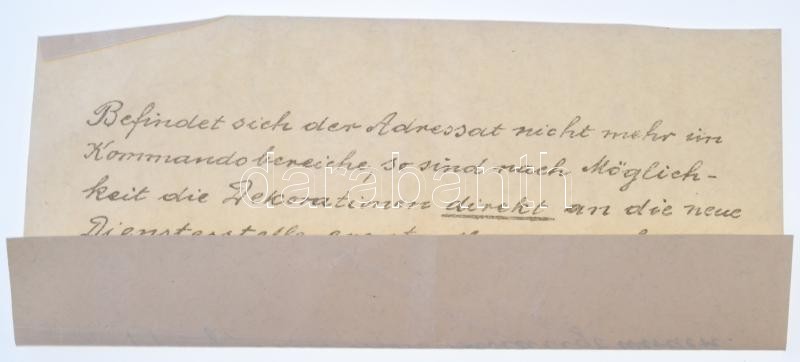 Befindet sich der Adressat nicht mehr im
Kommandobereiche, so sind nach Möglich-
keit die Dekorationen direkt an die neue
darabanth